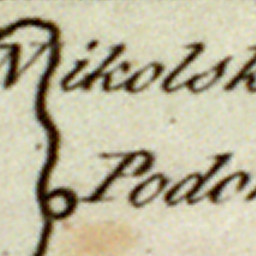 Nikolsk
Podo